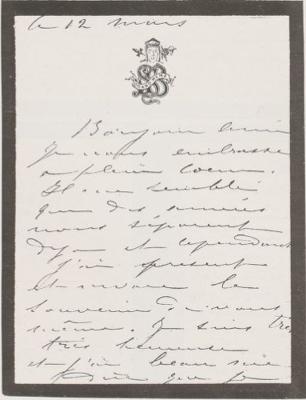 le 12 mars
Bonjour ami
Je vous embrasse
à plein coeur.
Il me semble
que des années
nous séparent
déjà et cependant
j'ai présent
et vivace le
souvenir de vous
même. Je suis très
très heureuse
et j'ai beau
que je